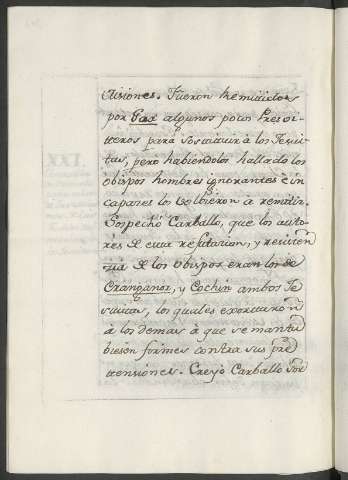 cisiones. Fueron Remitidos
por Goa algunos pocos Presvi-
tteros para sostituir à los Jesui-
tas, pero habiendolos hallado los
obispos hombres ignorantes è in
capazes los bolbieron à remitir.
Sospechó Carballo, que los auto-
res de esta refutacion, y resisten
zia de los obispos eran los de
Cranganor, y Cochin ambos Je
suitas, los quales exortaron
à los demas à que se mantu
biesen firmes contra sus pre
tensiones. Creyó Carballo
XXI.